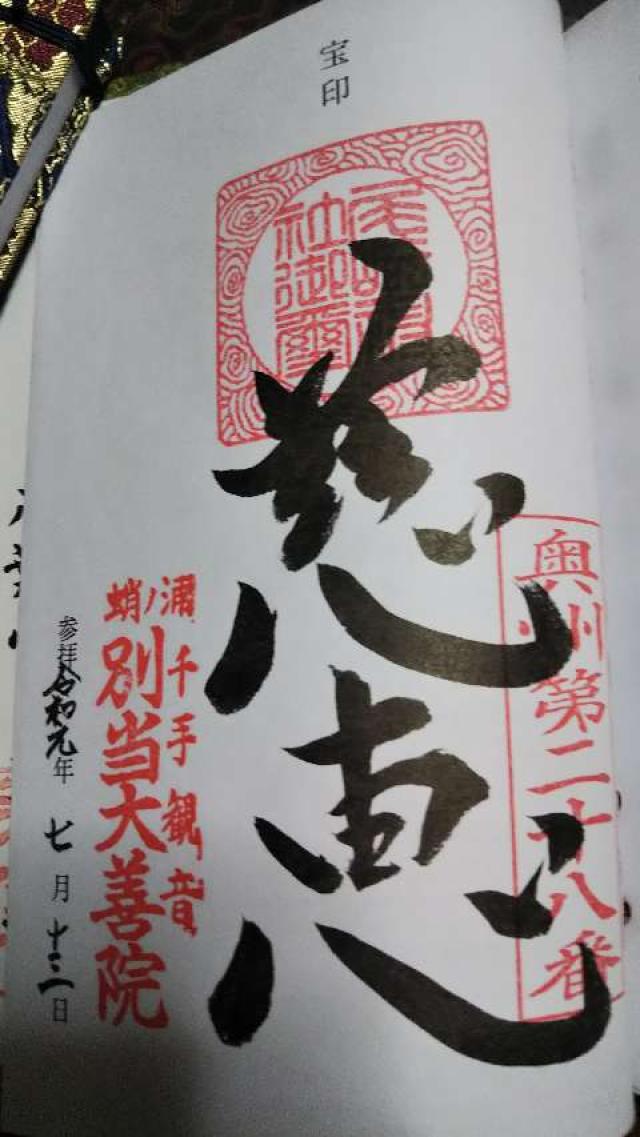 宝印
奥州第二十八番
慈恵
社御璽
蛸ノ浦千手観音
別当大善院
参拝令和元年七月十三日